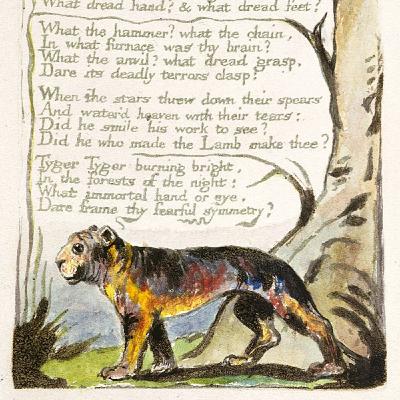 What dread hand? & what dread feet?
What the hammer? what the chain,
In what furnace was thy brain?
What the anvil? what dread grasp,
Dare its deadly terrors clasp?
When the stars threw down their spears
And water'd heaven with their tears:
Did he smile his work to see?
Did he who made the Lamb make thee?
Tyger Tyger burning bright,
In the forests of the night:
What immortal hand or eye,
Dare frame thy fearful symmetry?